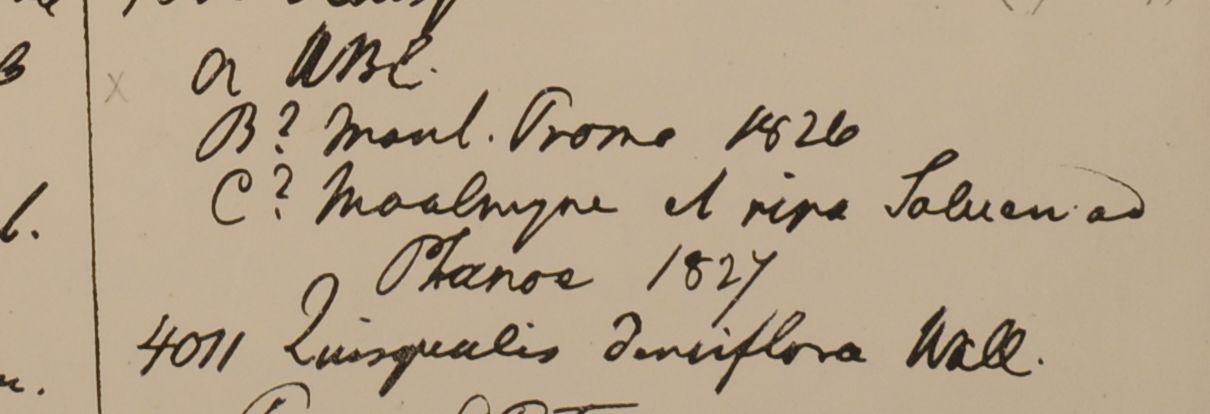 a HBC.
B? Mont. Prome 1826
C? Moalmyne et ripa Saluen ad
Phanoe 1827
4011 Quisqualis densiflora Wall.